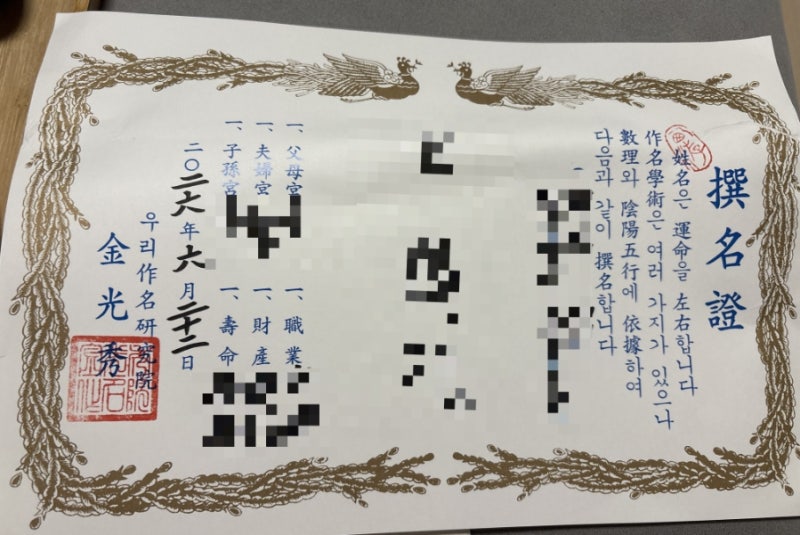 撰名證
姓名은 運命을 左右합니다
作名學術은 여러 가지가 있으나
數理와 陰陽五行에 依據하여
다음과 같이 撰名합니다
一、父母宮
一、夫婦宮
一、子孫宮
一、職業
一、財産
一、壽命
二〇二六年 六月 二十二日
우리作名硏究院
金光秀